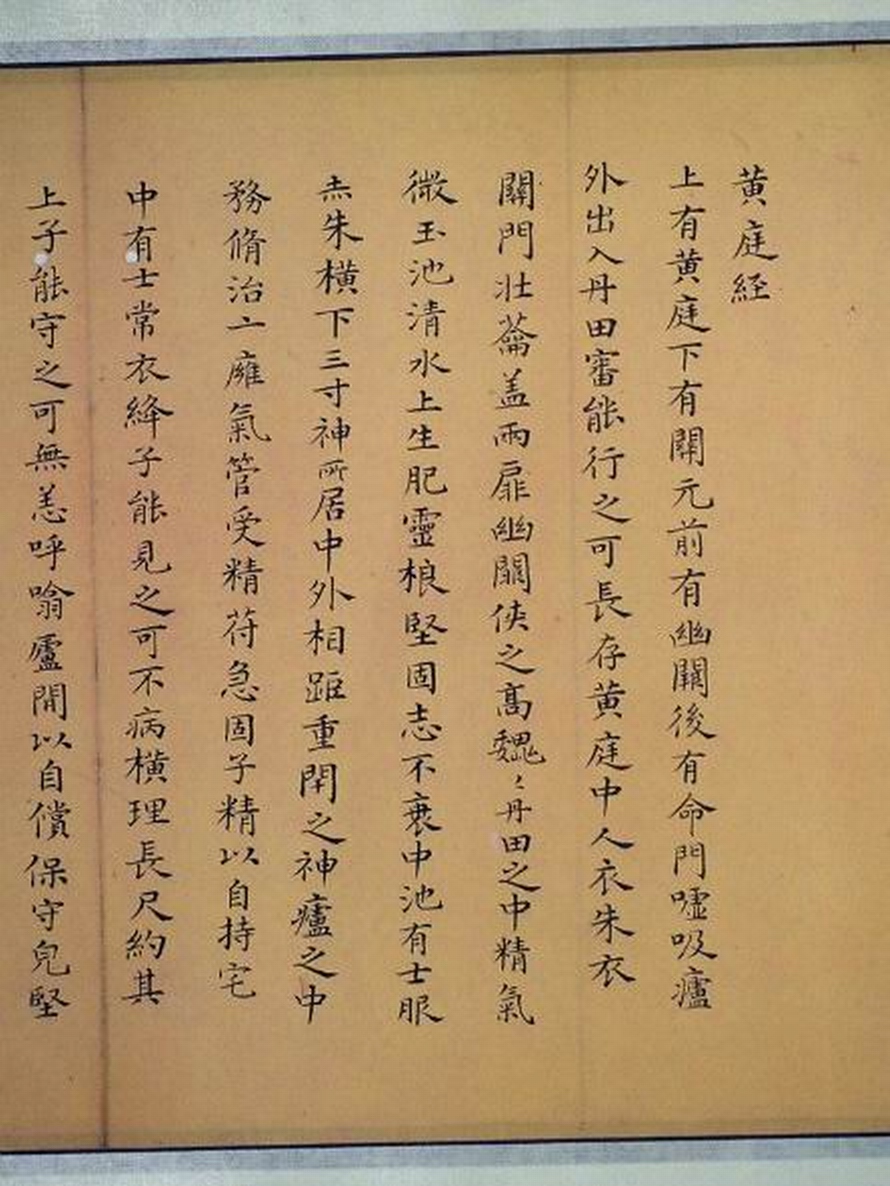 黄庭経
上有黄庭下有關元前有幽關後有命門噓吸廬
外出入丹田審能行之可長存黄庭中人衣朱衣
關門壮蘥盖兩扉幽闗侠之髙魏〻丹田之中精氣
微玉池清水上生肥靈根堅固志不衰中池有士服
赤朱横下三寸神所居中外相距重閇之神廬之中
務脩治亠廱氣管受精苻急固子精以自持宅
中有士常衣絳子能見之可不病横理長尺約其
上子能守之可無恙呼噏廬閒以自償保守皃堅